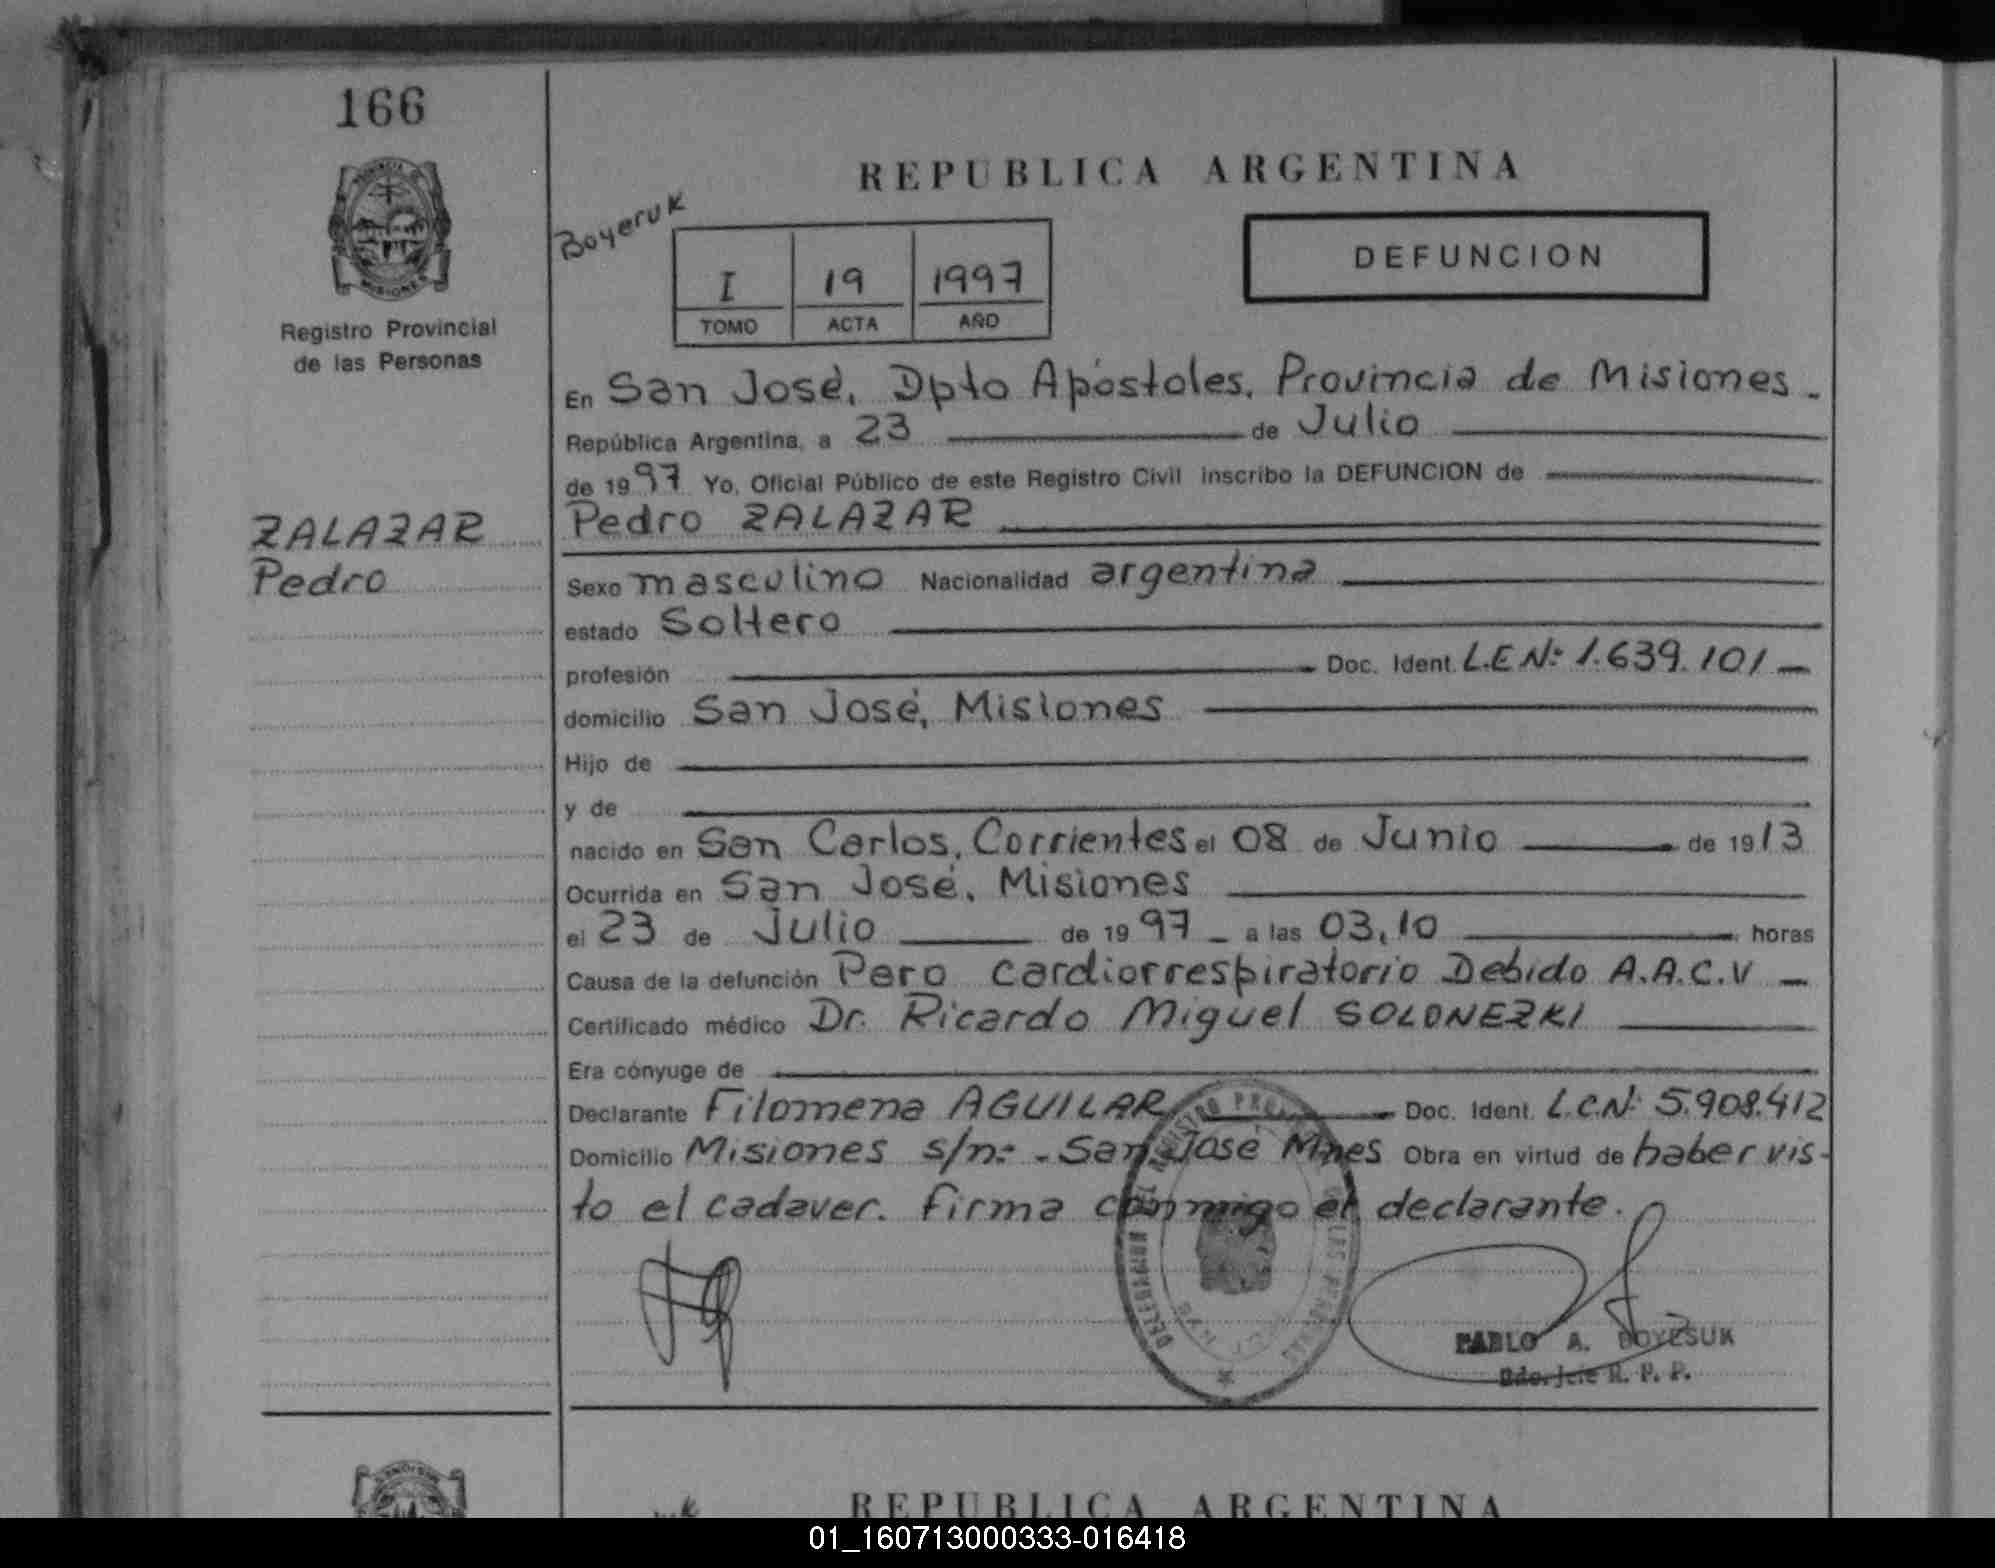 166
REPUBLICA ARGENTINA
Boyeruk
DEFUNCION
I 19 1997
TOMO ACTA AÑO
MISIONES
Registro Provincial
de las Personas
En San José, Dpto Apóstoles, Provincia de Misiones.
República Argentina, a 23 de Julio
de 1997 Yo, Oficial Público de este Registro Civil inscribo la DEFUNCION de
ZALAZAR
Pedro
Pedro ZALAZAR
Sexo masculino Nacionalidad argentina
estado Soltero
profesión Doc. Ident. L.E Nº 1.639.101-
domicilio San José, Misiones
Hijo de
y de
nacido en San Carlos, Corrientes el 08 de Junio de 1913
Ocurrida en San José, Misiones
el 23 de Julio de 1997 - a las 03,10 horas
Causa de la defunción Paro cardiorrespiratorio Debido A.A.C.V -
Certificado médico Dr. Ricardo Miguel SOLONEZKI
Era cónyuge de
Declarante Filomena AGUILAR Doc. Ident. L.C.Nº 5.908.412
Domicilio Misiones s/nº - San José Mnes Obra en virtud de haber vis-
to el cadaver. Firma conmigo el declarante.
PABLO A. BOYESUK
R. P. P.
REPUBLICA ARGENTINA
01_160713000333-016418